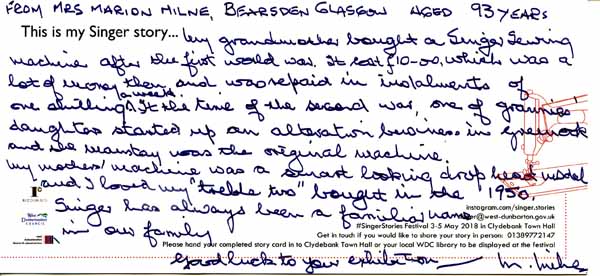 FROM MRS MARION MILNE, BEARSDEN GLASGOW AGED 93 YEARS
This is my Singer story... My grandmother bought a Singer Sewing
machine after the first world war. It cost £10-00, which was a
lot of money then and was repaid in instalments of
one shilling a week. At the time of the second war, one of grannies
daughters started up an alteration business in Greenock
and the mainstay was the original machine.
My mothers' machine was a smart looking drop head model
and I loved my "treble two" bought in the 1950.
Singer has always been a familiar name
in our family
instagram.com/singer.stories
@west-dunbarton.gov.uk
#SingerStories Festival 3-5 May 2018 in Clydebank Town Hall
Get in touch if you would like to share your story in person: 01389772147
Please hand your completed story card in to Clydebank Town Hall or your local WDC library to be displayed at the festival
Good luck to your exhibition — M. Milne
West
Dunbartonshire
COUNCIL